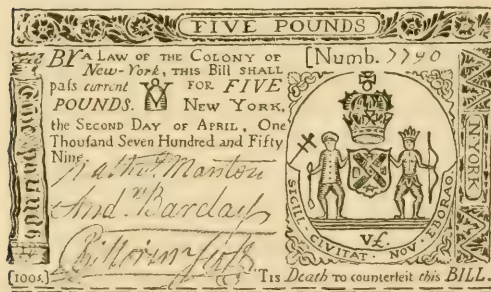 FIVE POUNDS
BY A LAW OF THE COLONY OF
New-York, THIS Bill SHALL
paſs current FOR FIVE
POUNDS. NEW YORK,
the SECOND DAY OF APRIL, One
Thouſand Seven Hundred and Fifty
Nine
[Numb. 7790
And.w Barclay
SIGILL. CIVITAT. NOV. EBORAC.
V£.
N·YORK
[100s.]
TIS Death TO counterfeit this BILL.